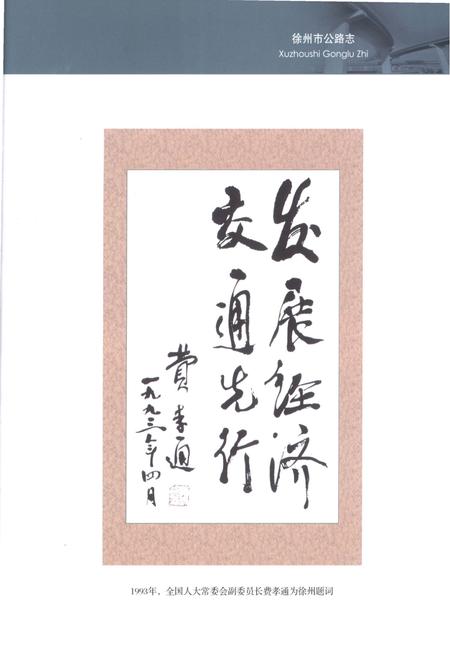 徐州市公路志
Xuzhoushi Gonglu Zhi
发展经济
交通先行
费孝通
一九九三年四月
1993年，全国人大常委会副委员长费孝通为徐州题词